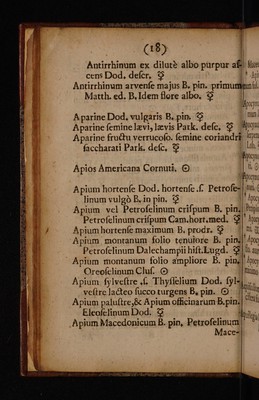 (18)
Antirrhinum ex dilutè albo purpur as-
cens Dod. descr. ☿
Antirrhinum arvense majus B. pin. primum
Matth. ed. B. Idem flore albo. ☿
Aparine Dod. vulgaris B. pin. ☿
Aparine semine lævi, lævis Park. desc. ☿
Aparine fructu verrucoso. semine coriandri
saccharati Park. desc. ☿
Apios Americana Cornuti. ☉
Apium hortense Dod. hortense .s. Petrose-
linum vulgò B. in pin. ☿
Apium vel Petroselinum crispum B. pin.
Petroselinum crispum Cam. hort. med. ☿
Apium hortense maximum B. prodr. ☿
Apium montanum folio tenuiore B. pin.
Petroselinum Dalechampii hist. Lugd. ☿
Apium montanum folio ampliore B. pin.
Oreoselinum Clus. ☉
Apium sylvestre .s. Thysselium Dod. syl-
vestre lacteo succo turgens B. pin. ☉
Apium palustre, & Apium officinarum B. pin.
Eleoselinum Dod. ☿
Apium Macedonicum B. pin. Petroselinum
Mace-